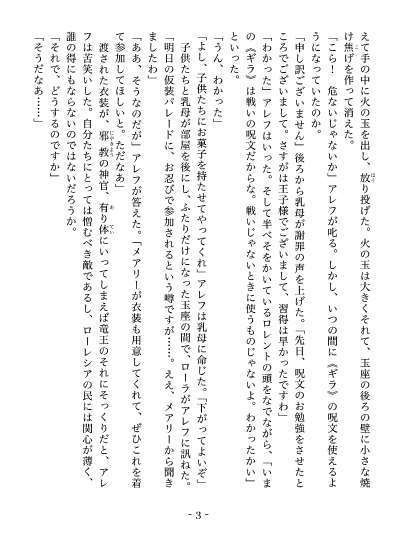 えて手の中に火の玉を出し、放り投げた。火の玉は大きくそれて、玉座の後ろの壁に小さな焼
け焦げを作って消えた。
「こら！　危ないじゃないか」アレフが叱る。しかし、いつの間に《ギラ》の呪文を使えるよ
うになっていたのか。
「申し訳ございません」後ろから乳母が謝罪の声を上げた。「先日、呪文のお勉強をさせたと
ころでございまして。さすがは王子様でございまして、習得は早かったですわ」
「わかった」アレフはいった。そして半べそをかいているロレントの頭をなでながら、「いま
の《ギラ》は戦いの呪文だからな。戦いじゃないときに使うものじゃないよ。わかったかい」
といった。
「うん、わかった」
「よし、子供たちにお菓子を持たせてやってくれ」アレフは乳母に命じた。「下がってよいぞ」
子供たちと乳母が部屋を後にし、ふたりだけになった玉座の間で、ローラがアレフに訊ねた。
「明日の仮装パレードに、お忍びで参加されるという噂ですが……。ええ、メアリーから聞き
ましたわ」
「ああ、そうなのだが」アレフが答えた。「メアリーが衣装も用意してくれて、ぜひこれを着
て参加してほしいと。ただなあ」
渡された衣装が、邪教の神官、有り体にいってしまえば竜王のそれにそっくりだと、アレ
フは苦笑いした。自分たちにとっては憎むべき敵であるし、ローレシアの民には関心が薄く、
誰の得にもならないのではないだろうか。
「それで、どうするのですか」
「そうだなあ……」
- 3 -